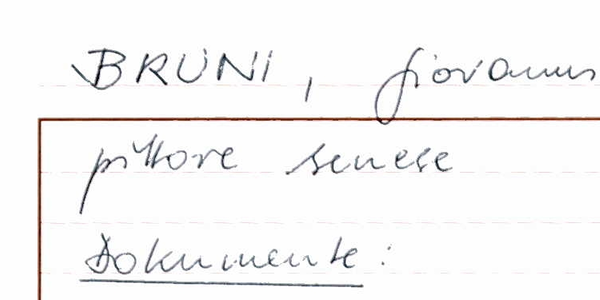 BRUNI, Giovanni
pittore senese
Dokumente: